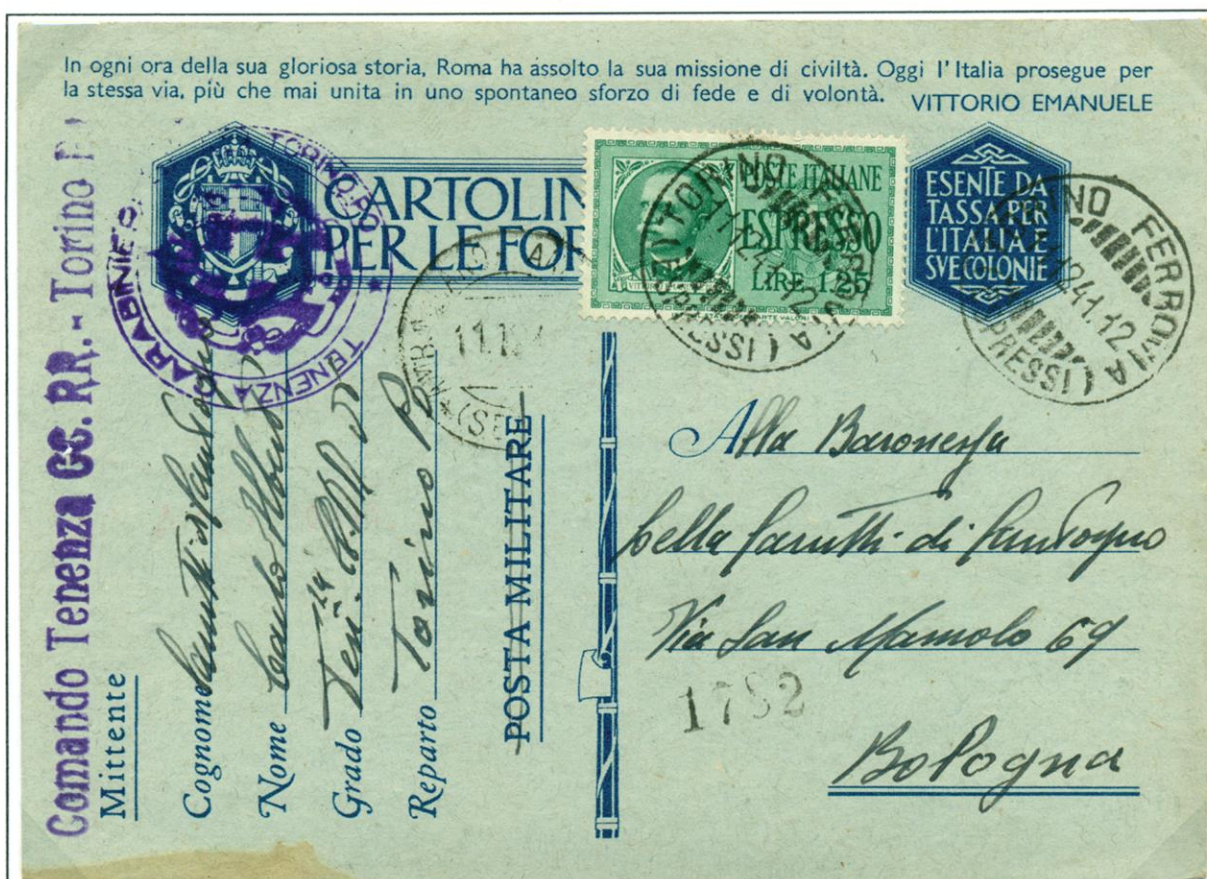 In ogni ora della sua gloriosa storia, Roma ha assolto la sua missione di civiltà. Oggi l'Italia prosegue per
la stessa via, più che mai unita in uno spontaneo sforzo di fede e di volontà. VITTORIO EMANUELE
CARTOLIN
PER LE FOR
POSTE ITALIANE
ESPRESSO
LIRE 1,25
ESENTE DA
TASSA PER
L'ITALIA E
SVE COLONIE
TORINO FERROVIA
11.12.41.12
TORINO FERROVIA
12.41.12
TORINO PO
TENENZA CARABINIERI
Comando Tenenza CC. RR. - Torino
Mittente
Cognome
Nome Carlo
Grado Ten.
Reparto Torino Po
POSTA MILITARE
Alla Baronessa
di
Via San Mamolo 69
1782
Bologna